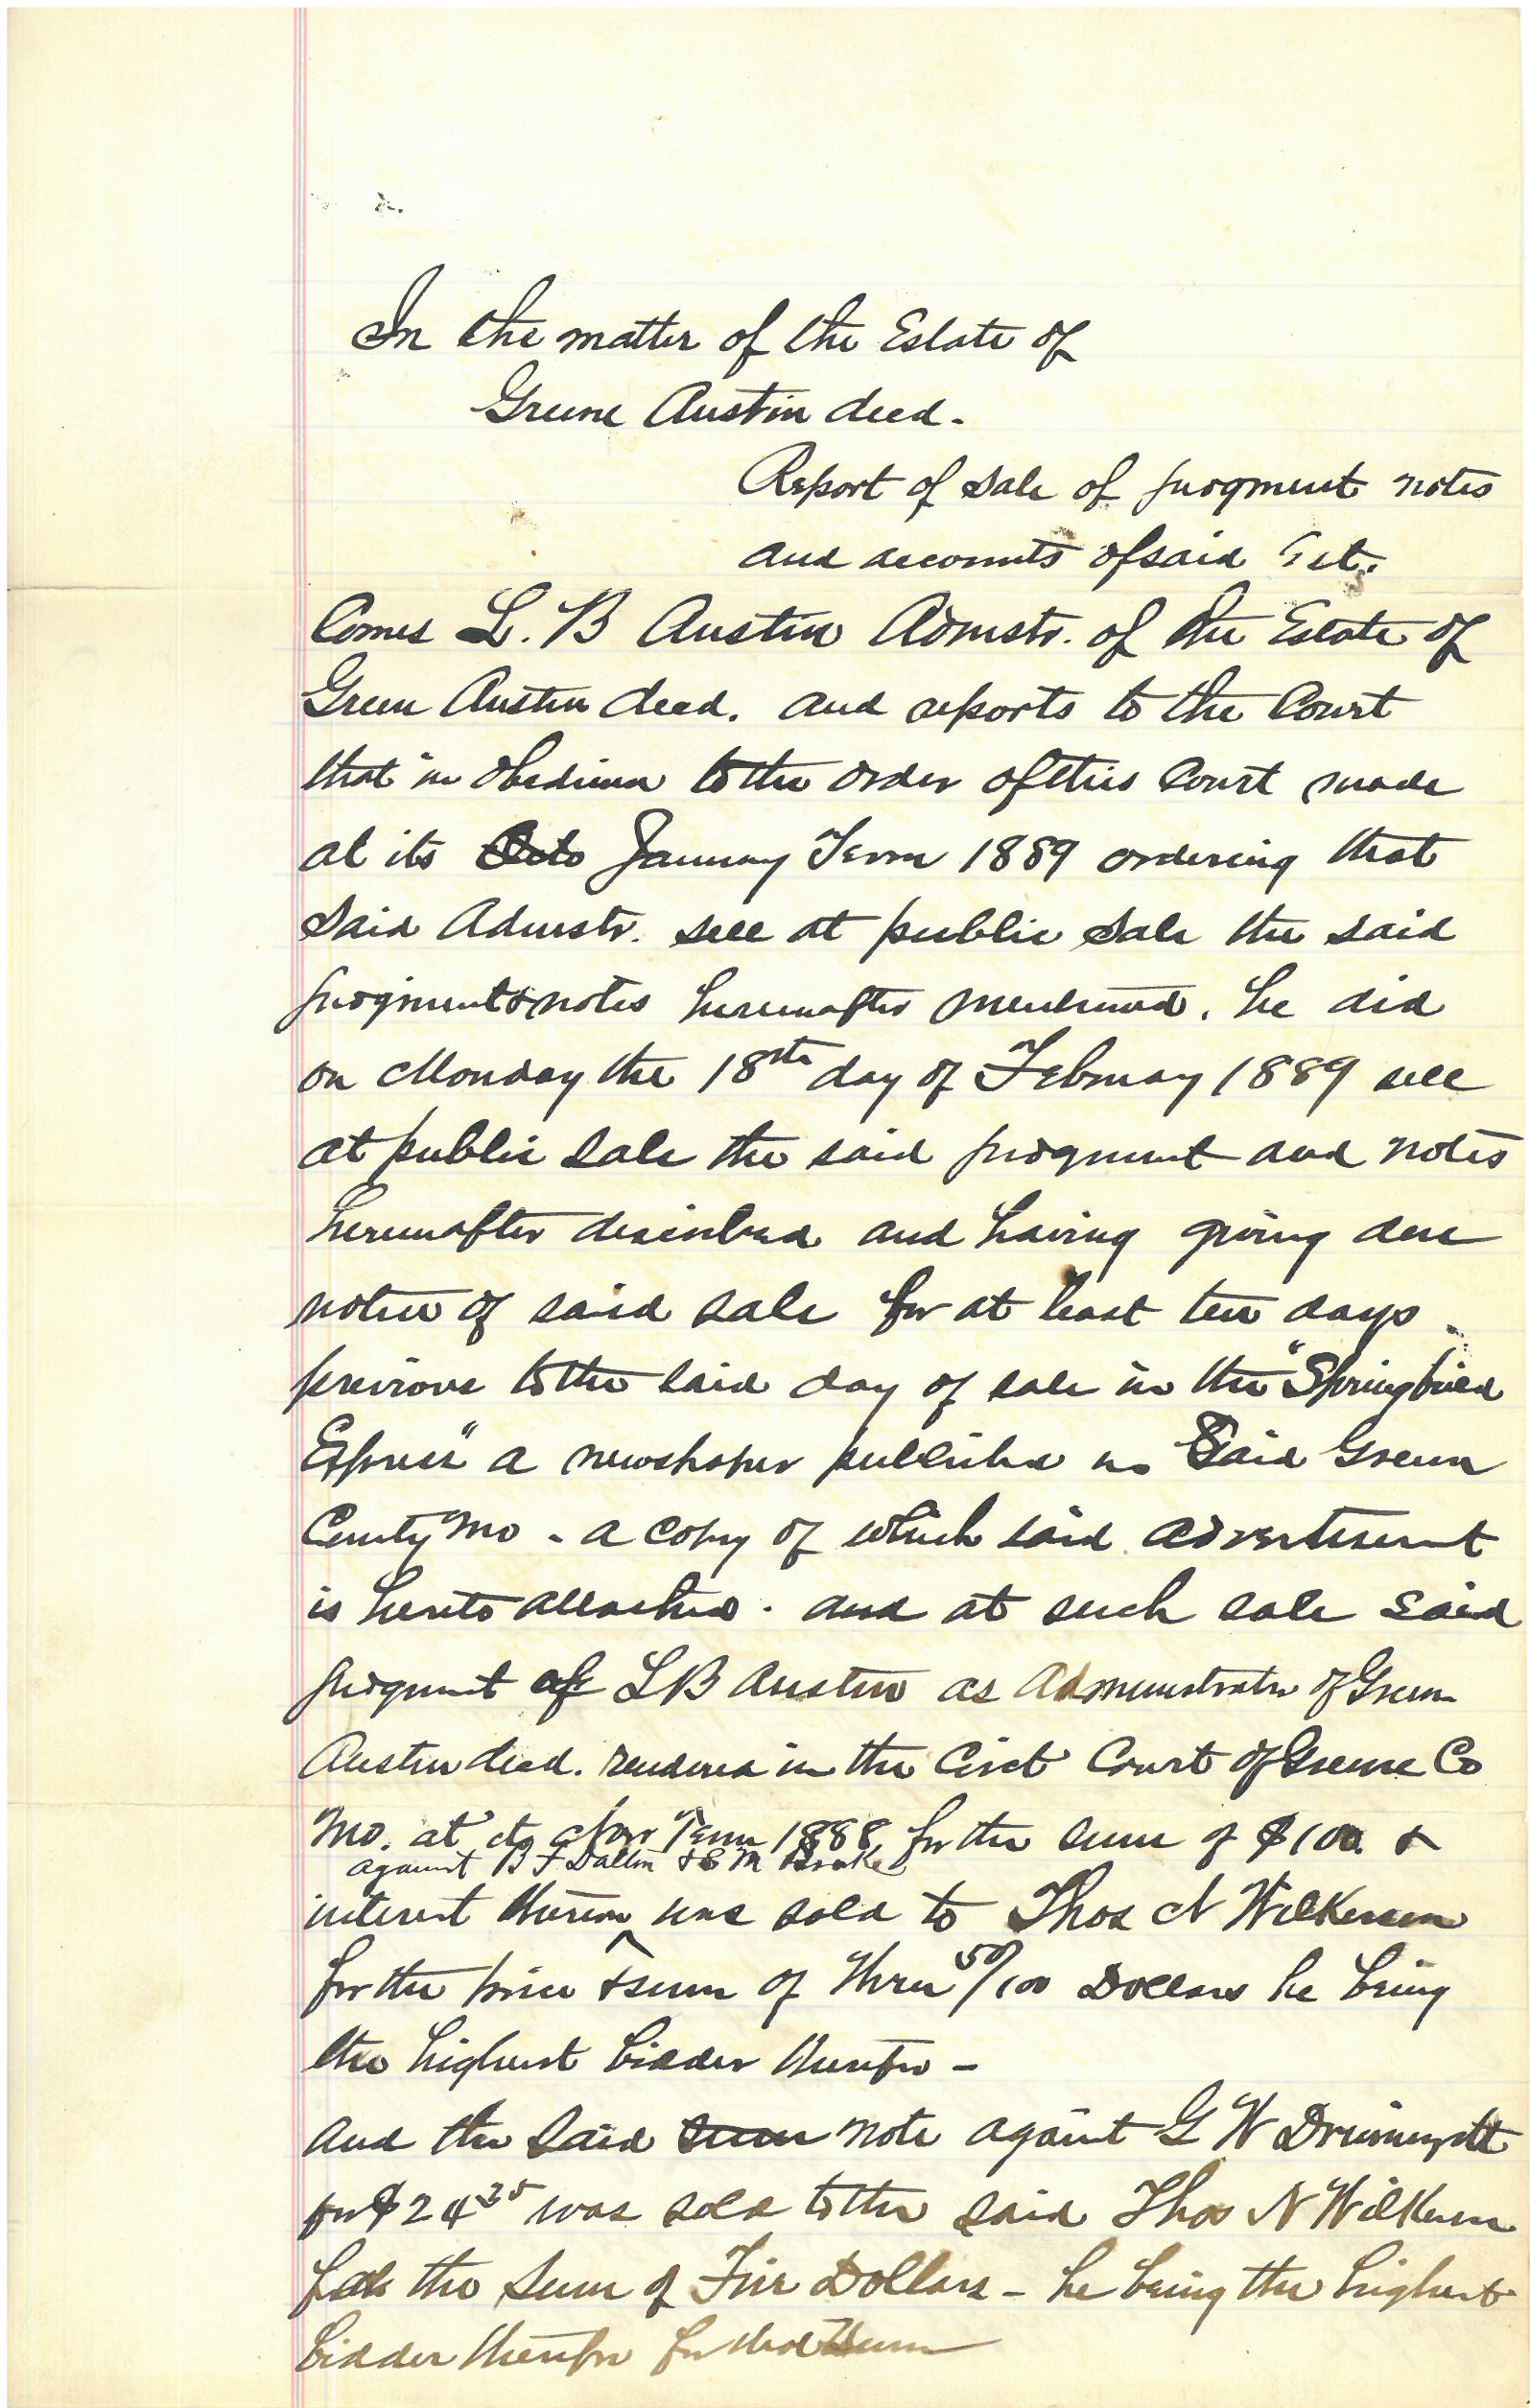 In the matter of the Estate of
Greene Austin decd.
Report of sale of judgment notes
and accounts of said Est.
Comes L. B Austin Admstr. of the Estate of
Green Austin decd. and reports to the Court
that in obedience to the order of this Court made
at its Octo January Term 1889 ordering that
said Admstr. sell at public sale the said
judgment & notes hereinafter mentioned, he did
on Monday the 18th day of February 1889 sell
at public sale the said judgment and notes
hereinafter described and having giving due
notice of said sale for at least ten days
previous to the said day of sale in the "Springfield
Express" a newspaper published in said Greene
County Mo - a copy of which said advertisement
is hereto attached. and at such sale said
judgment of L B Austin as Administrator of Green
Austin decd. rendered in the Circt Court of Greene Co
Mo. at its Nov Term 1888 for the sum of $100. &
against B F Dalton & S M
interest thereon was sold to Thos N Wilkerson
for the price & sum of three 50/100 Dollars he being
the highest bidder therefor -
and the said sum note against G W
for $24 25 was sold to the said Thos N Wilkerson
for the sum of Five Dollars - he being the highest
bidder therefor for that sum